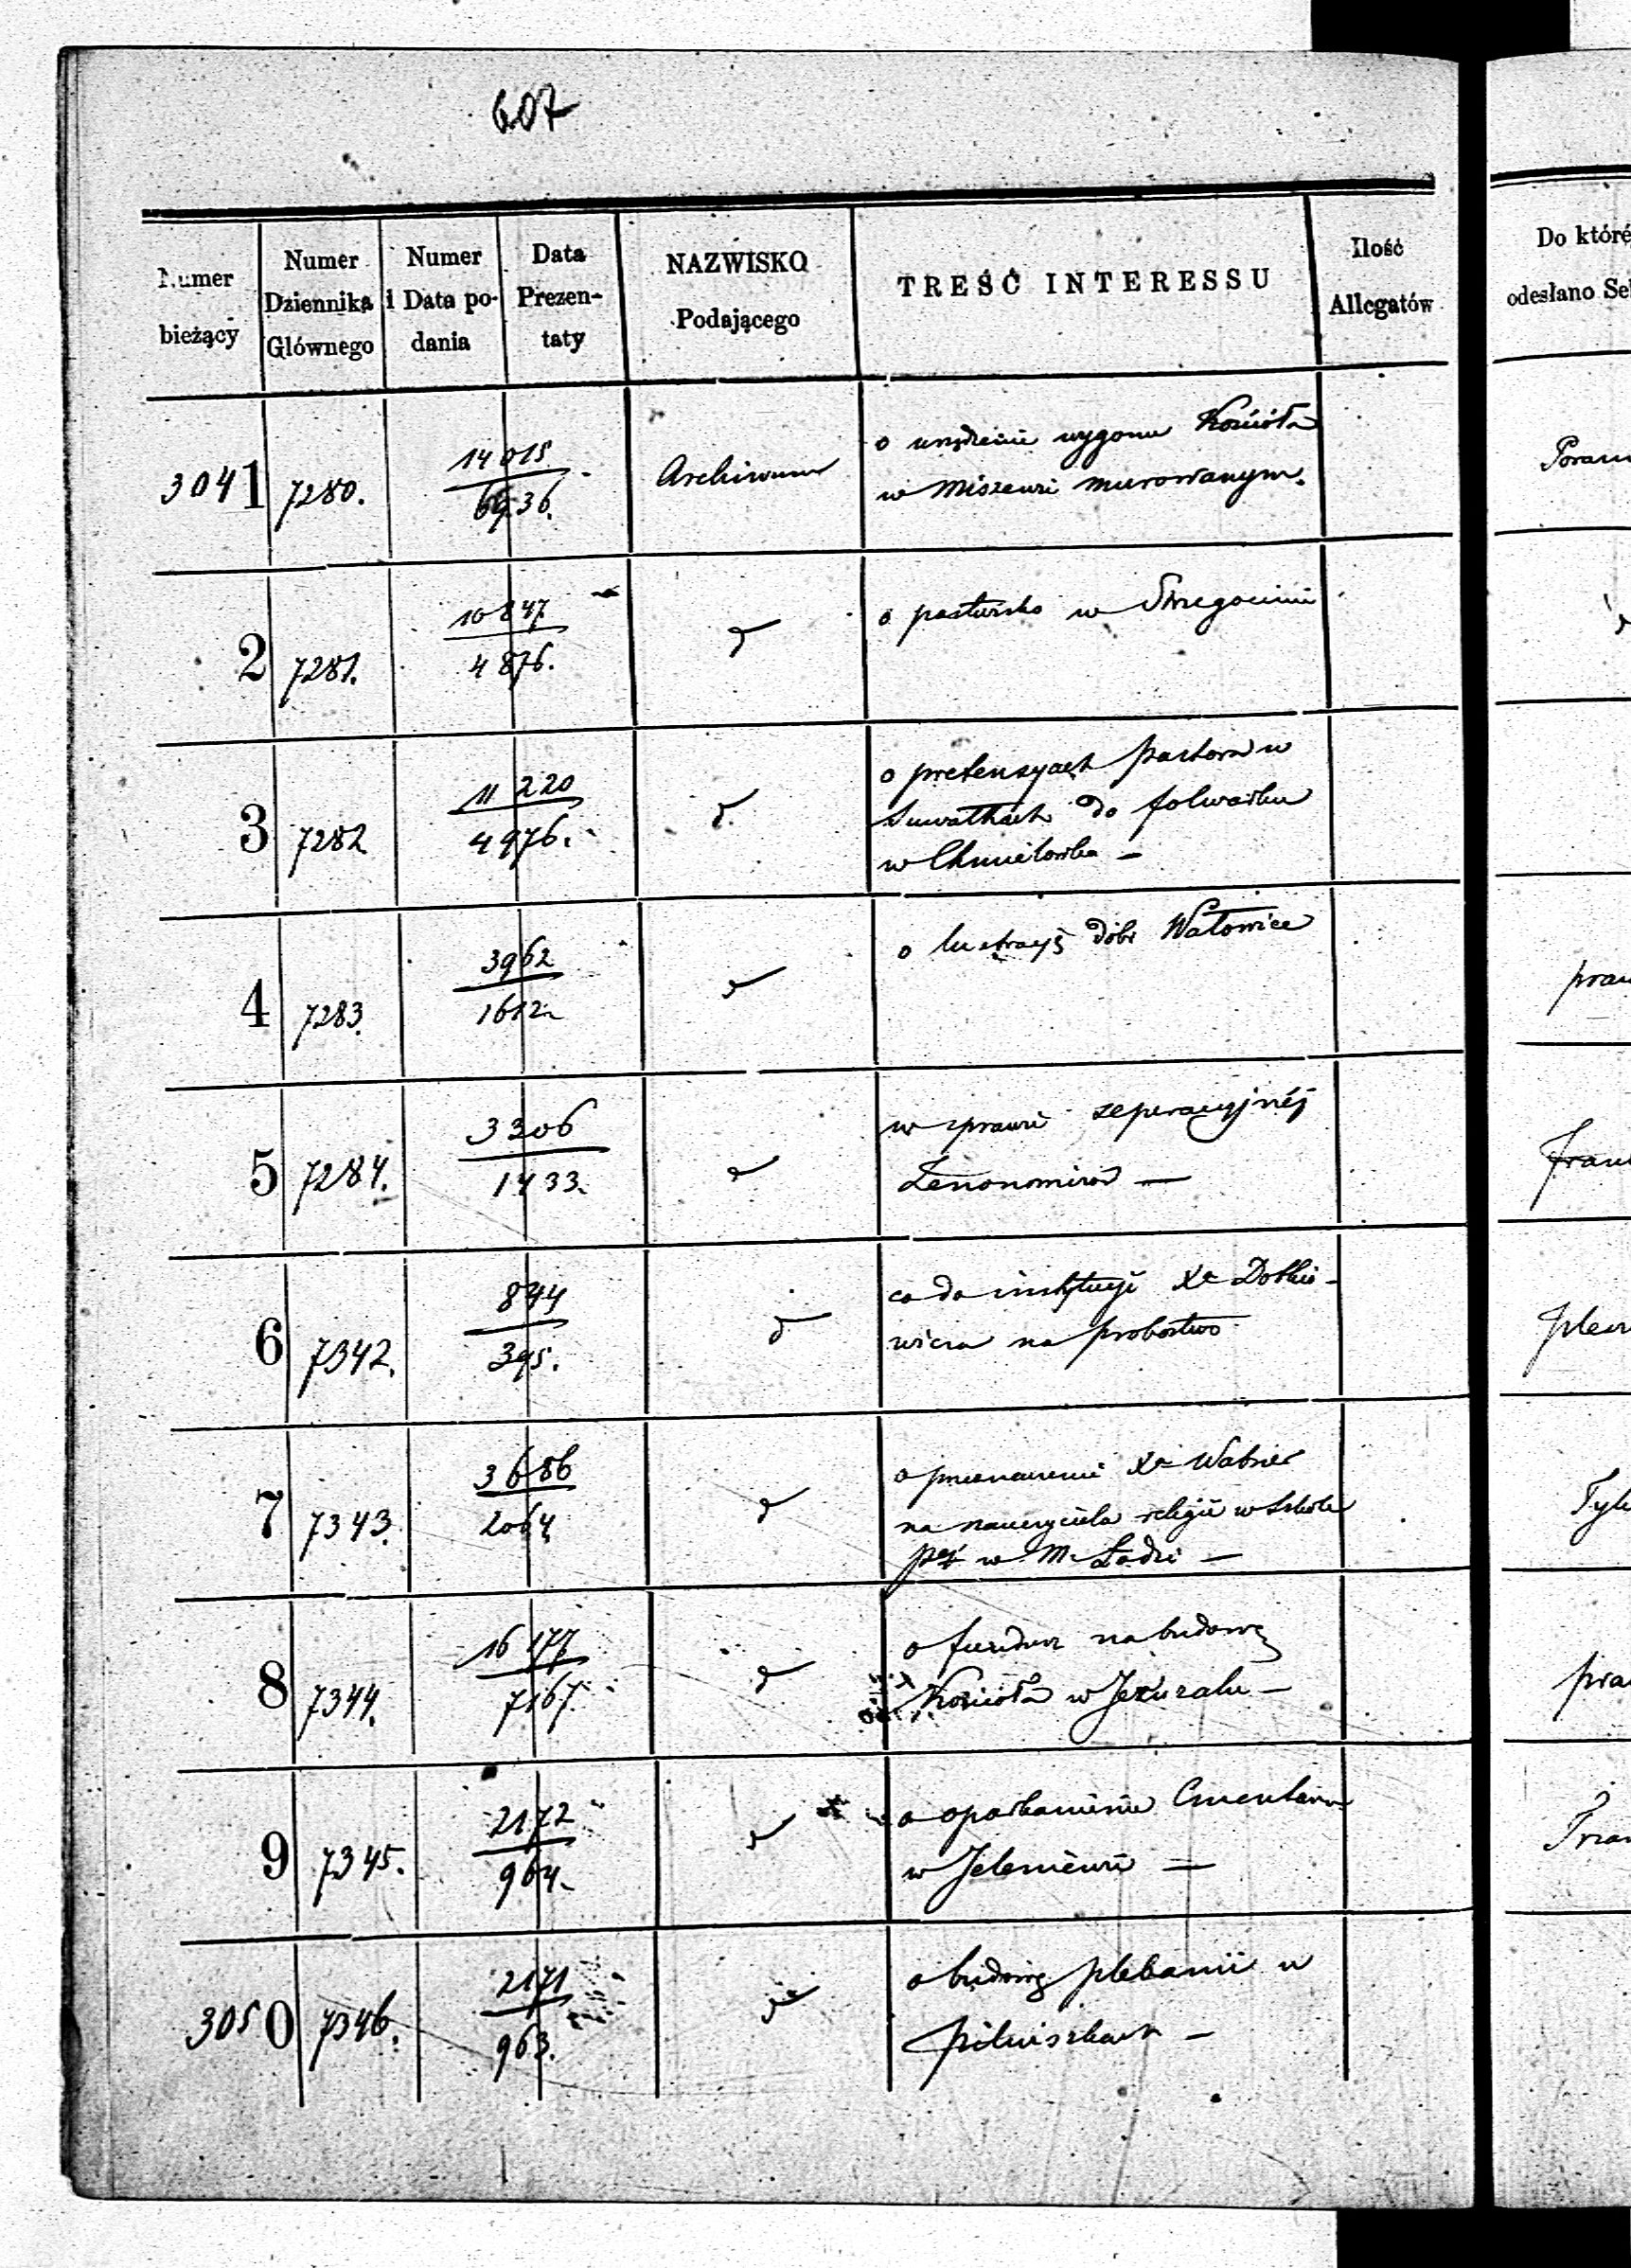 607
Numer
bieżący
Numer
Dziennika
Głównego
Numer
i Data po-
dania
Data
Prezen-
taty
NAZWISKO
Podającego
TREŚĆ INTERESSU
Ilość
Allegatów
Do któré
odesłano Sek
3041
7280.
14015
6936.
Archiwum
o urządzenie wygonu Kościoła
w Miszewie murowanym.
2
7281.
10847
4876.
d
o pastwisko w Strzegocinie
3
7282
11220
4976.
d.
o pretensyach Pastora w
Suwałkach do folwarku
w Chmielówka —
4
7283.
3962
1612
d
o lustracyę dóbr Watowice
praw
5
7284.
3306
1433.
d
w sprawie separacyjnéj
6
7342.
844
395.
d
co do instytucyi Xa Dobkie-
wicza na probostwo
7
7343.
3686
2064
d
o przeznaczenie Xa Wabner
na nauczyciela religii w szkole
w M. Łodzi —
Tyk
8
7344.
16177
7167.
d
o fundusz na budowę
Kościoła w Jeruzalu —
pra
9
7345.
2172
964.
d
o oparkanienie Cmentarza
w Jeleniewie —
3050
7346.
2171
963.
d
o budowę plebanii w
Pilwiszkach —